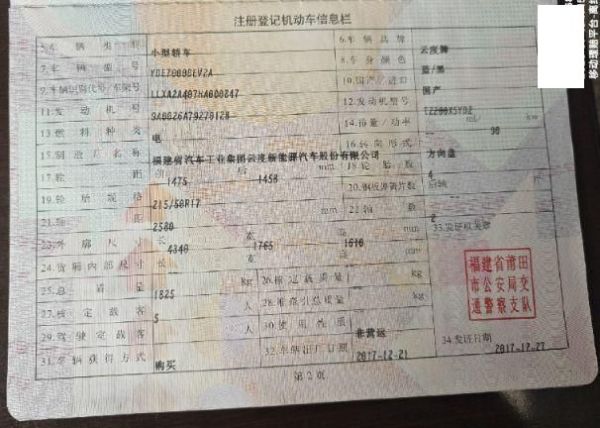 注册登记机动车信息栏
5.车辆类型 小型轿车 6.车辆品牌 云度牌
7.车辆型号 YDE7000BEV2A 8.车身颜色 蓝/黑
9.车辆识别代号/车架号 10.国产/进口 国产
11.发动机号 12.发动机型号 TZ200XSYD2
13.燃料种类 电 14.排量/功率 90
15.制造厂名称 福建省汽车工业集团云度新能源汽车股份有限公司 16.转向形式 方向盘
17.轮距 前 1475 后 1458 18.轮胎数 4
19.轮胎规格 215/50R17 20.钢板弹簧片数 后轴
21.轴距 2580 mm 22.轴数 2
23.外廓尺寸 长 4340 宽 1765 高 1610 mm 33.发证机关章
24.货厢内部尺寸 长 宽 高 mm
25.总质量 1825 kg 26.核定载质量 kg
27.核定载客 5 人 28.准牵引总质量 kg
29.驾驶室载客 人 30.使用性质 非营运
31.车辆获得方式 购买 32.车辆出厂日期 2017-12-21 34.发证日期 2017-12-27
福建省莆田
市公安局交
通警察支队
第2页
移动理赔平台-离线